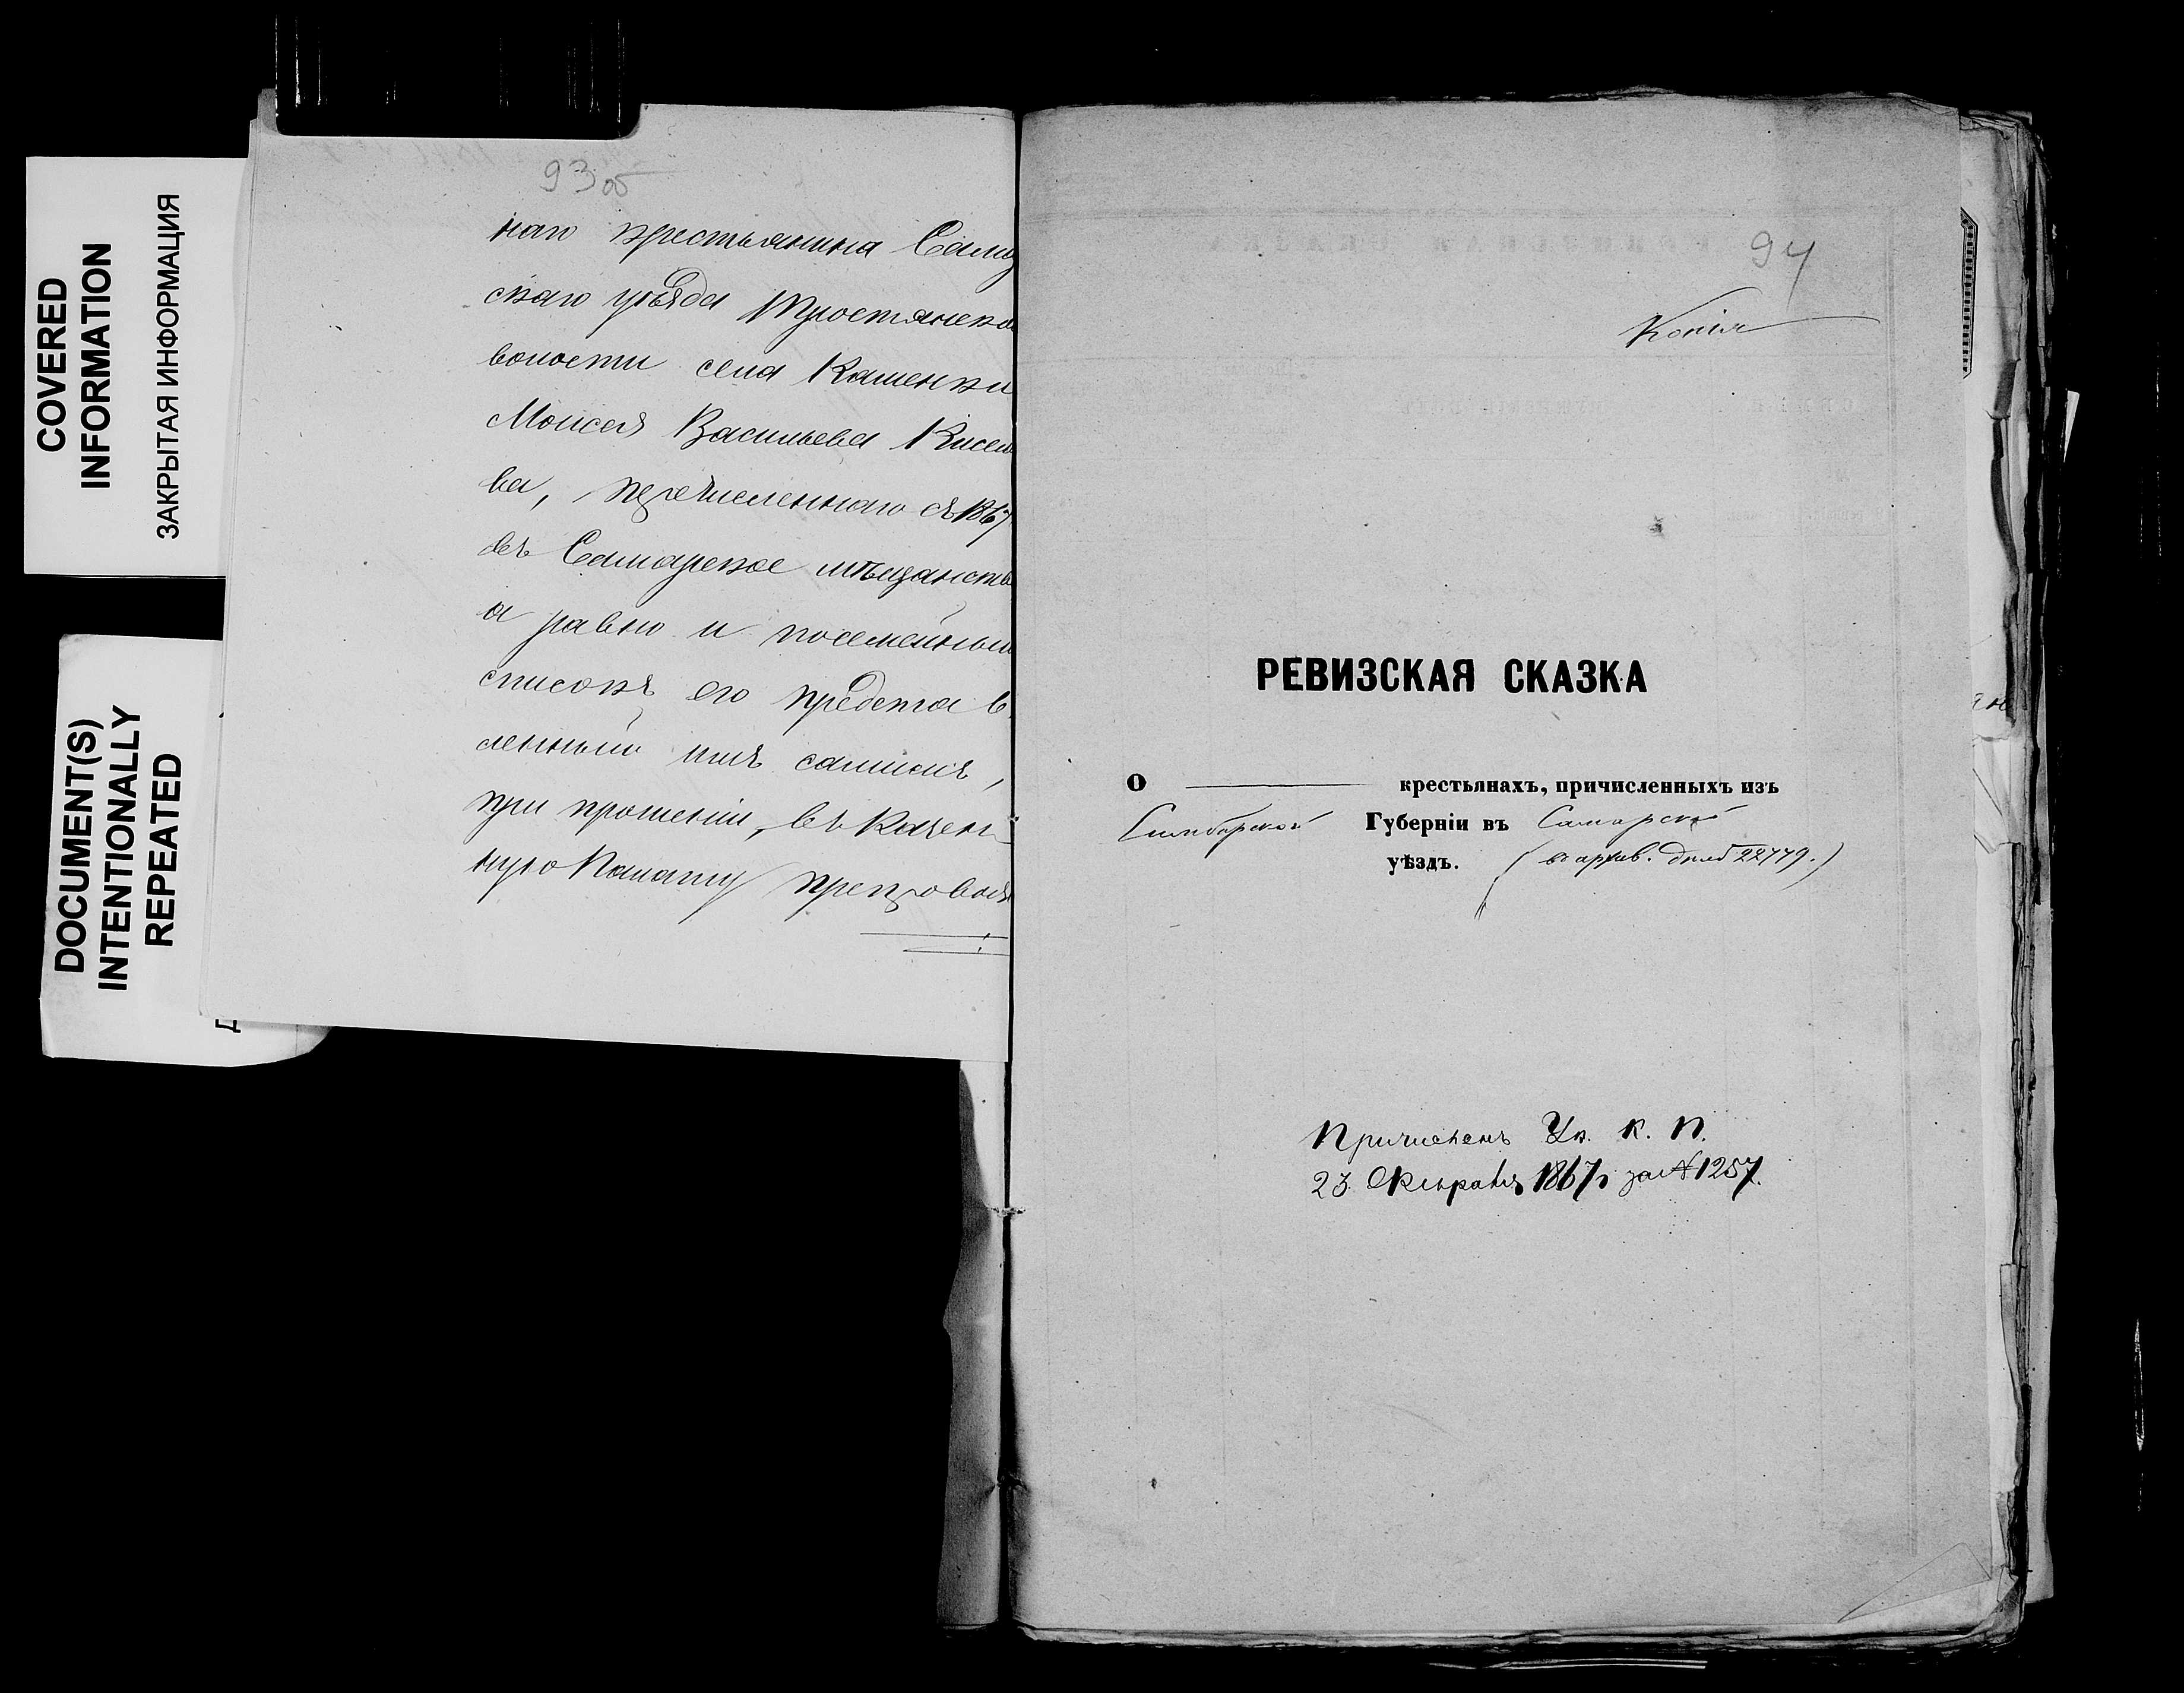 COVERED
INFORMATION
ЗАКРЫТАЯ ИНФОРМАЦИЯ
DOCUMENT(S)
INTENTIONALLY
REPEATED
93 об
наго крестьянина Сама
скаго уѣзда Тростянско
волости села Каменки
Моисея Васильева Кисел
ва, перечисленнаго съ 1867
въ Самарское мѣщанств
а равно и посемейный
списокъ его представ
ленный имъ самимъ,
при прошеніи, въ Казен
ную Палату препровож
94
Копія
РЕВИЗСКАЯ СКАЗКА
О крестьянахъ, причисленныхъ изъ
Симбирской Губерніи въ Самарской
уѣздъ. (въ архив. дѣлѣ 22779.)
Причисленъ Ук. К. П.
23 Февраля 1867г. за № 1257.